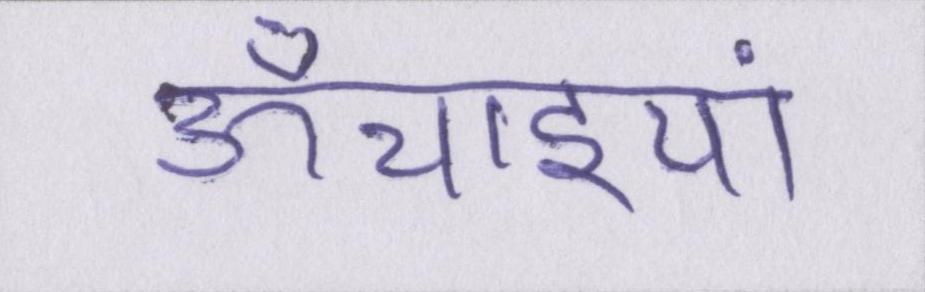 ऊँचाइयां